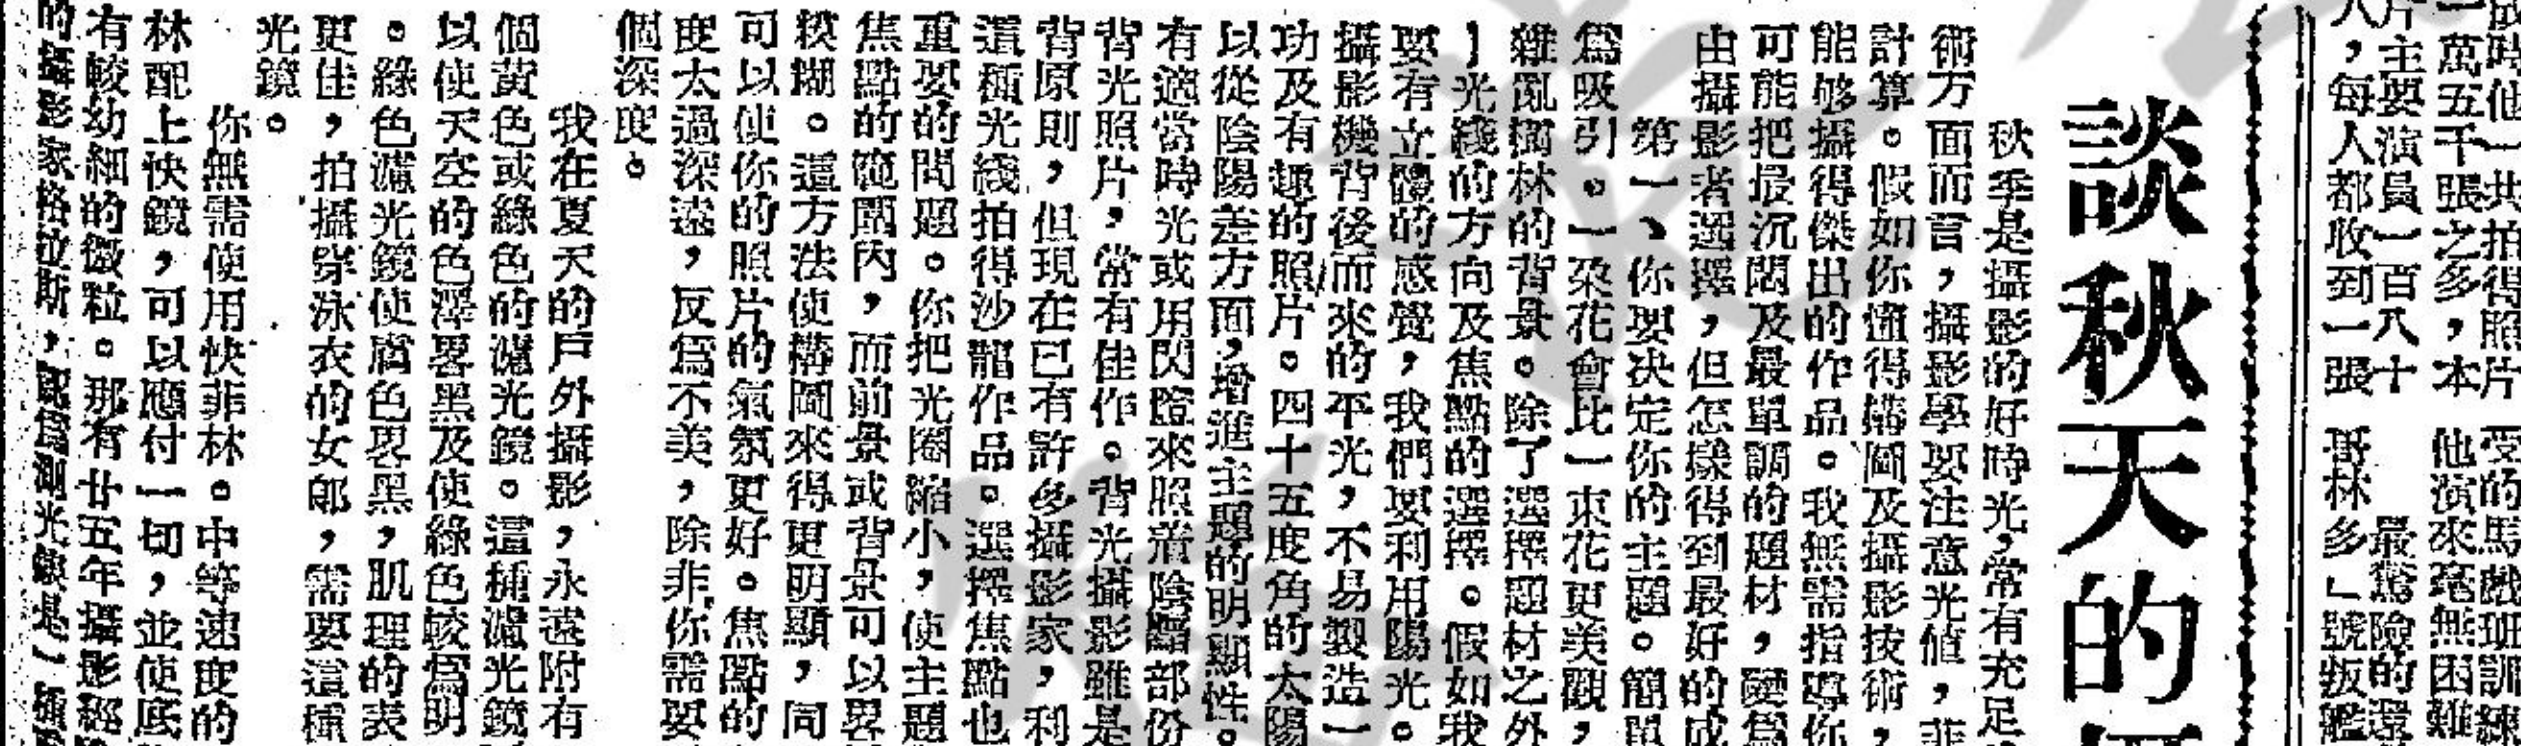 成時他一共拍得照片
一萬五千張之多，本
片主要演員一百八十
人，每人都收到一張
受的馬戲班訓練
他演來毫無困難
最驚險的還
哥林多」號叛艦
談秋天的
秋季是攝影的好時光，常有充足
術方面而言，攝影學要注意光值，菲
計算。假如你懂得構圖及攝影技術，
能够攝得傑出的作品。我無需指導你
可能把最沉悶及最單調的題材，變爲
由攝影者選擇，但怎樣得到最好的成
第一、你要决定你的主題。簡單
爲吸引。一朶花會比一束花更美觀，
雜亂樹林的背景。除了選擇題材之外
】光綫的方向及焦點的選擇。假如我
要有立體的感覺，我們要利用陽光。
攝影機背後而來的平光，不易製造一
功及有趣的照片。四十五度角的太陽
以從陰陽差方面，增進主題的明顯性。
有適當時光或用閃燈來照着陰黯部份
背光照片，常有佳作。背光攝影雖是
背原則，但現在已有許多攝影家，利
這種光綫拍得沙龍作品。選擇焦點也
重要的問題。你把光圈縮小，使主題
焦點的範圍內，而前景或背景可以畧
糢糊。這方法使構圖來得更明顯，同
可以使你的照片的氣氛更好。焦點的
度太過深遠，反爲不美，除非你需要
個深度。
我在夏天的戶外攝影，永遠附有
個黃色或綠色的濾光鏡。這種濾光鏡
以使天空的色澤畧黑及使綠色較爲明
。綠色濾光鏡使膚色畧黑，肌理的表
更佳，拍攝穿泳衣的女郎，需要這種
光鏡。
你無需使用快菲林。中等速度的
林配上快鏡，可以應付一切，並使底
有較幼細的微粒。那有廿五年攝影經
的攝影家格拉斯，認爲測光錶是一種